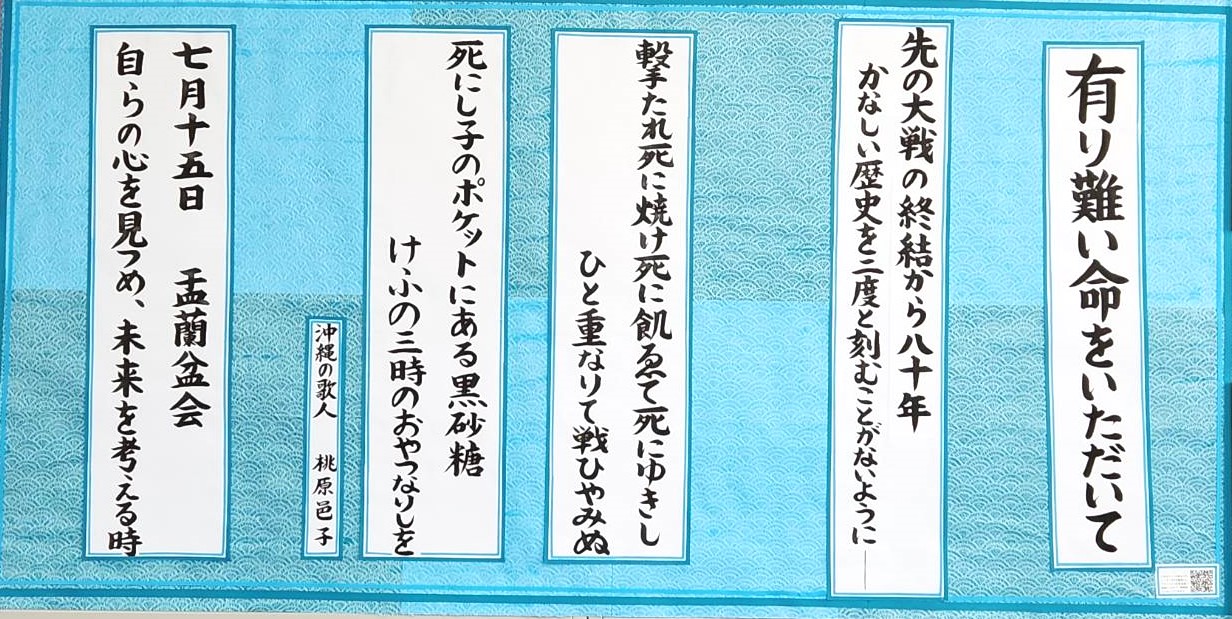 有り難い命をいただいて
先の大戦の終結から八十年
かなしい歴史を二度と刻むことがないように――
撃たれ死に焼け死に飢ゑて死にゆきし
ひと重なりて戦ひやみぬ
死にし子のポケットにある黒砂糖
けふの三時のおやつなりしを
沖縄の歌人 桃原邑子
七月十五日 盂蘭盆会
自らの心を見つめ、未来を考える時